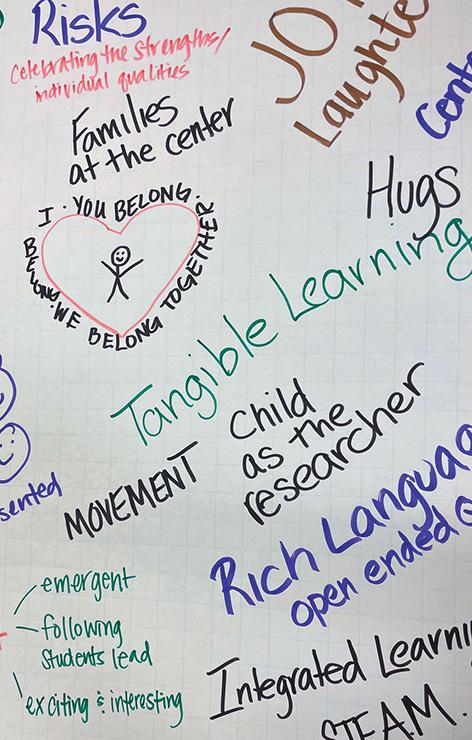 Risks
Celebrating the strengths/
individual qualities
JO
Laughte
Families
at the center
Conte
Hugs
I BELONG. YOU BELONG. WE BELONG TOGETHER
Tangible Learning
Child
as the
researcher
MOVEMENT
sented
Rich Languag
open ended
emergent
following
students lead
exciting & interesting
Integrated Learni
STEAM.